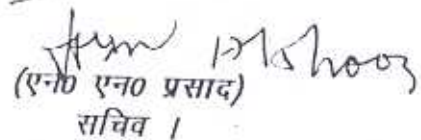 (एन० एन० प्रसाद)
सचिव ।